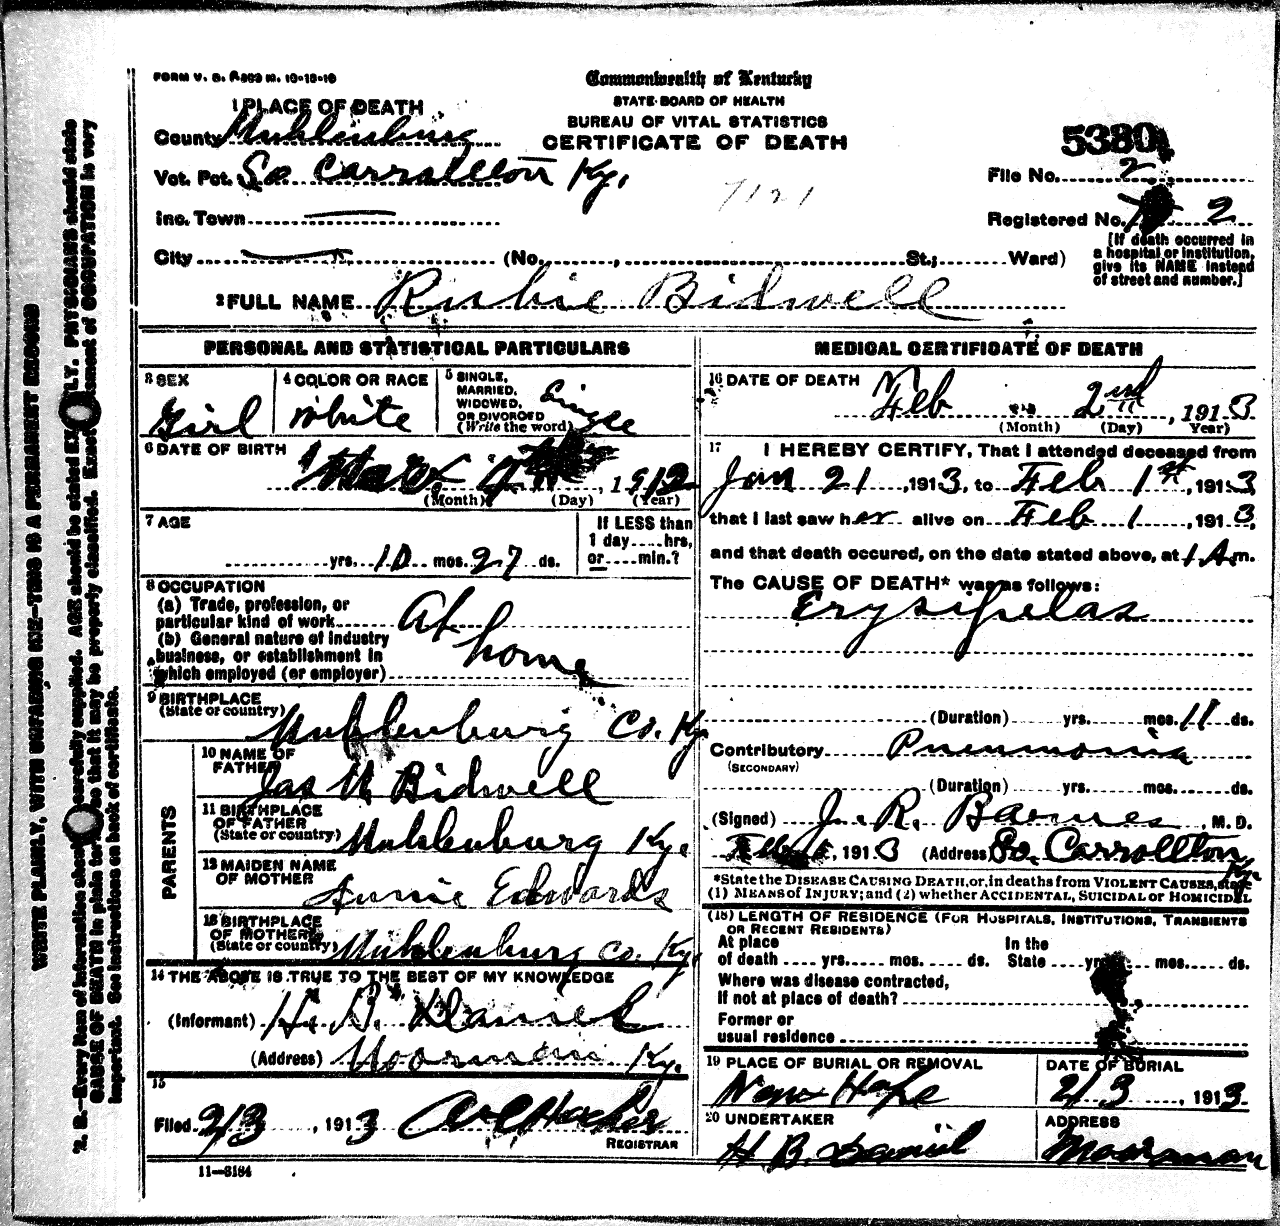 FORM V. S. No. 10-18-10
Commonwealth of Kentucky
STATE BOARD OF HEALTH
BUREAU OF VITAL STATISTICS
CERTIFICATE OF DEATH
1 PLACE OF DEATH
County Muhlenburg
Vot. Pct. So Carrollton Ky.
Inc. Town
City (No. , St.; Ward)
7121
5380
File No. 2
Registered No. 2
[If death occurred in
a hospital or institution,
give its NAME instead
of street and number.]
2 FULL NAME Rubie Bidwell
PERSONAL AND STATISTICAL PARTICULARS
3 SEX
Girl
4 COLOR OR RACE
White
5 SINGLE,
MARRIED,
WIDOWED,
OR DIVORCED
(Write the word)
Single
6 DATE OF BIRTH
1912
(Month) (Day) (Year)
7 AGE
yrs. 10 mos. 27 ds.
If LESS than
1 day....hrs,
or....min.?
8 OCCUPATION
(a) Trade, profession, or
particular kind of work At home
(b) General nature of industry
business, or establishment in
which employed (or employer)
9 BIRTHPLACE
(State or country) Muhlenburg Co. Ky.
PARENTS
10 NAME OF
FATHER Jas Bidwell
11 BIRTHPLACE
OF FATHER
(State or country) Muhlenburg Ky.
12 MAIDEN NAME
OF MOTHER Annie Edwards
13 BIRTHPLACE
OF MOTHER
(State or country) Muhlenburg Co. Ky.
14 THE ABOVE IS TRUE TO THE BEST OF MY KNOWLEDGE
(Informant) H. B. Daniel
(Address) Moorman Ky.
15
Filed 2/3, 1913
REGISTRAR
11-3184
MEDICAL CERTIFICATE OF DEATH
16 DATE OF DEATH
Feb 2nd, 1913
(Month) (Day) Year)
17 I HEREBY CERTIFY, That I attended deceased from
Jan 21, 1913, to Feb 1st, 1913,
that I last saw her alive on Feb 1, 1913,
and that death occured, on the date stated above, at 1 A.m.
The CAUSE OF DEATH* was as follows:
Erysipelas
(Duration) yrs. mos. 11 ds.
Contributory Pneumonia
(SECONDARY)
(Duration) yrs. mos. ds.
(Signed) J. R. Barnes, M. D.
Feb, 1913 (Address) So. Carrollton Ky.
*State the DISEASE CAUSING DEATH, or, in deaths from VIOLENT CAUSES, state
(1) MEANS OF INJURY; and (2) whether ACCIDENTAL, SUICIDAL or HOMICIDAL
(18) LENGTH OF RESIDENCE (FOR HOSPITALS, INSTITUTIONS, TRANSIENTS
OR RECENT RESIDENTS)
At place of death .... yrs. .... mos. .... ds.
In the State .... yrs. .... mos. .... ds.
Where was disease contracted,
If not at place of death?
Former or
usual residence
19 PLACE OF BURIAL OR REMOVAL
New Hope
DATE OF BURIAL
2/3, 1913
20 UNDERTAKER
H B. Daniel
ADDRESS
Moorman
WRITE PLAINLY, WITH UNFADING INK—THIS IS A PERMANENT RECORD
N. B.—Every item of information should be carefully supplied. AGE should be stated EXACTLY. PHYSICIANS should state
CAUSE OF DEATH in plain terms, so that it may be properly classified. Exact statement of OCCUPATION is very
important. See instructions on back of certificate.